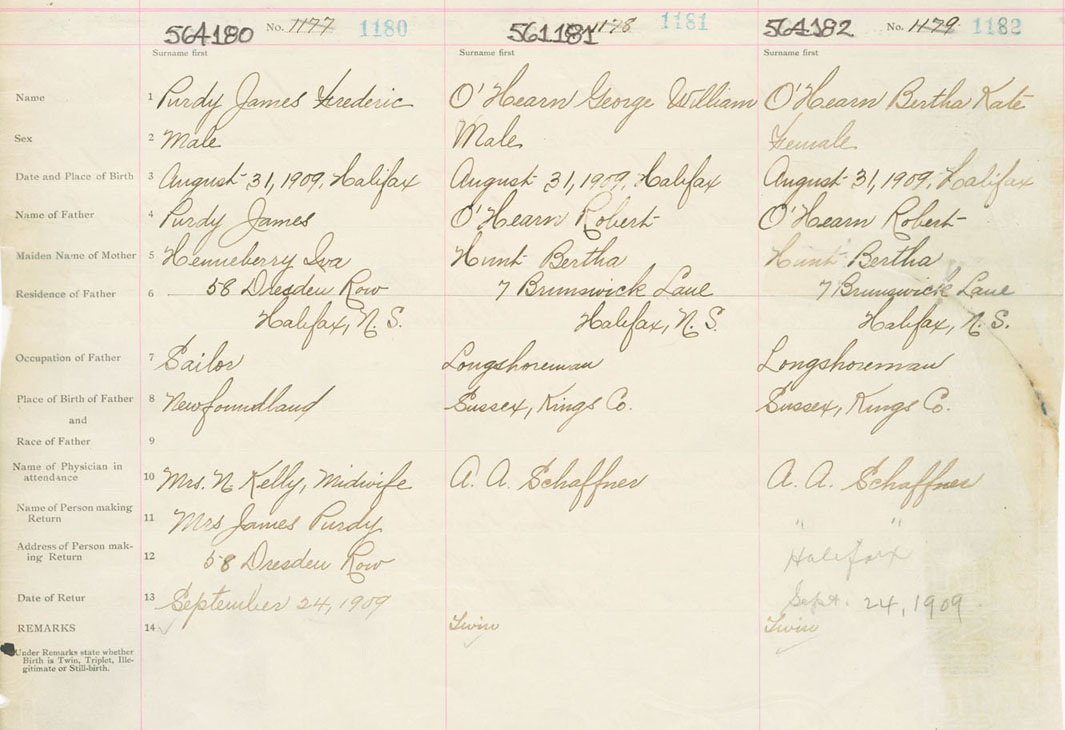 564180 No. 1177 1180 561181 1178 1181 564182 No. 1179 1182
Surname first Surname first Surname first
Name 1 Purdy James Frederic O'Hearn George William O'Hearn Bertha Kate
Sex 2 Male Male Female
Date and Place of Birth 3 August 31, 1909, Halifax August 31, 1909, Halifax August 31, 1909, Halifax
Name of Father 4 Purdy James O'Hearn Robert O'Hearn Robert
Maiden Name of Mother 5 Henneberry Iva Hunt Bertha Hunt Bertha
Residence of Father 6 58 Dresden Row 7 Brunswick Lane 7 Brunswick Lane
Halifax, N.S. Halifax, N.S. Halifax, N.S.
Occupation of Father 7 Sailor Longshoreman Longshoreman
Place of Birth of Father 8 Newfoundland Sussex, Kings Co. Sussex, Kings Co.
and
Race of Father 9
Name of Physician in
attendance 10 Mrs. N Kelly, Midwife A. A. Schaffner A. A. Schaffner
Name of Person making
Return 11 Mrs James Purdy " "
Address of Person mak-
ing Return 12 58 Dresden Row Halifax
Date of Retur 13 September 24, 1909 Sept. 24, 1909
REMARKS 14 Twin Twin
Under Remarks state whether
Birth is Twin, Triplet, Ille-
gitimate or Still-birth.